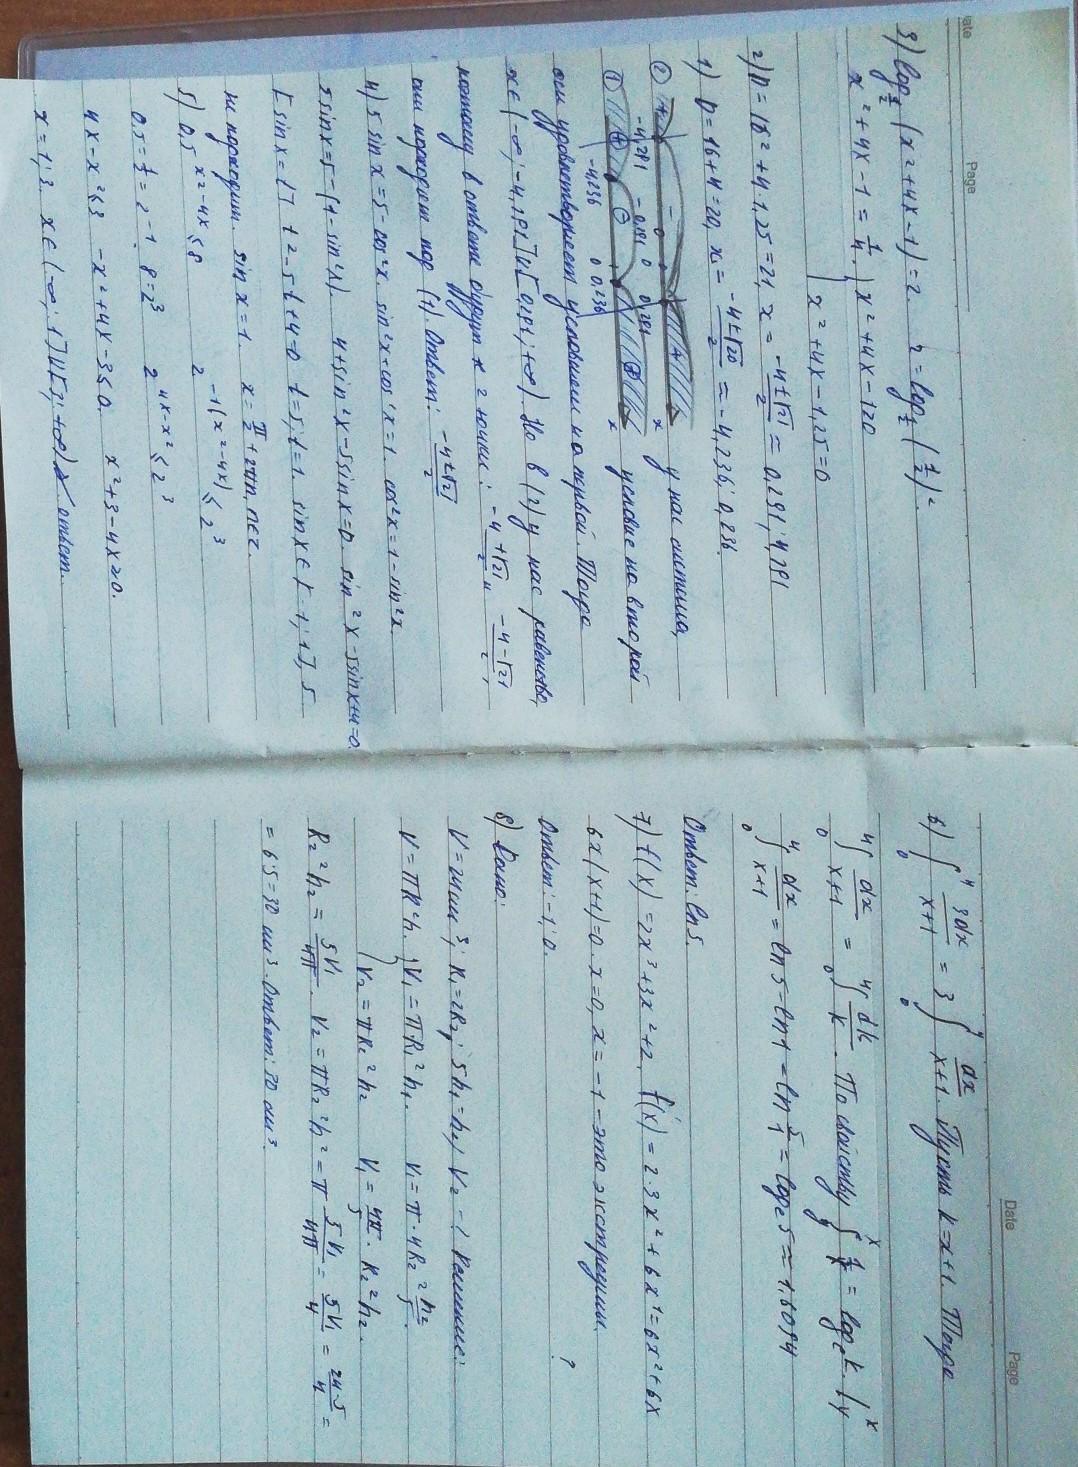 Date Page
3) log½ (x²+4x-1) = 2. 2 = log½ (½)².
x²+4x-1 = ¼. } x²+4x-1≥0
x²+4x-1,25=0
2) D = 16²+4·1,25=21, x = (-4±√21)/2 = 0,291; 4,291
1) D = 16+4=20, x₁ = (-4±√20)/2 = -4,236; 0,236.
② + - + x у нас система,
-4,291 -0,191 0 0,291
① + - + x условие на второй
-4,236 0 0,236
оси удовлетворяет условиям на первой. Тогда
x∈(-∞; -4,291]∪[0,291; +∞). Но в (2) у нас равенство,
потому в ответе будут 2 точки: (-4+√21)/2 и (-4-√21)/2,
они подходят под (1). Ответ: (-4±√21)/2
4) 5 sin x = 5-cos²x. sin²x+cos²x=1. cos²x=1-sin²x.
5 sin x = 5-(1-sin²x). 4+sin²x-5sin x=0. sin²x-5sinx+4=0.
[sin x = t] t²-5t+4=0 t=5, t=1. sin x∈[-1; 1], 5
не подходит. sin x = 1. x = π/2 + 2πn, n∈z.
5) 0,5^(x²-4x) ≤ 8 2^(-1(x²-4x)) ≤ 2³
0,5=½=2⁻¹. 8=2³ 2^(4x-x²) ≤ 2³
4x-x²≤3 -x²+4x-3≤0. x²+3-4x≥0.
x=1; 3. x∈(-∞; 1]∪[3; +∞) ответ.
Date Page
6) ∫₀⁴ 3dx/(x+1) = 3 ∫₀⁴ dx/(x+1). Пусть k=x+1. Тогда
∫₀⁴ dx/(x+1) = ∫₀⁴ dk/k. По свойству
∫₀⁴ dx/(x+1) = ln 5 - ln 1 = ln 5/1 = log_e 5 = 1,6094
Ответ: ln 5.
7) f(x) = 2x³+3x²+2, f'(x) = 2·3x²+6x¹=6x²+6x
6x(x+1)=0. x=0, x=-1 - это экстремумы.
Ответ: -1; 0. ?
8) Дано:
V=24см³; R₁=2R₂; 5h₁=h₂, V₂-? Решение:
V=πR²h. } V₁=πR₁²h₁. V₁=π·4R₂²h₂/5.
V₂=πR₂²h₂ V₁=4π/5·R₂²h₂.
R₂²h₂=5V₁/4π. V₂=πR₂²h²=π 5V₁/4π = 5V₁/4 = 24·5/4 =
= 6·5=30 см³. Ответ: 30 см³.